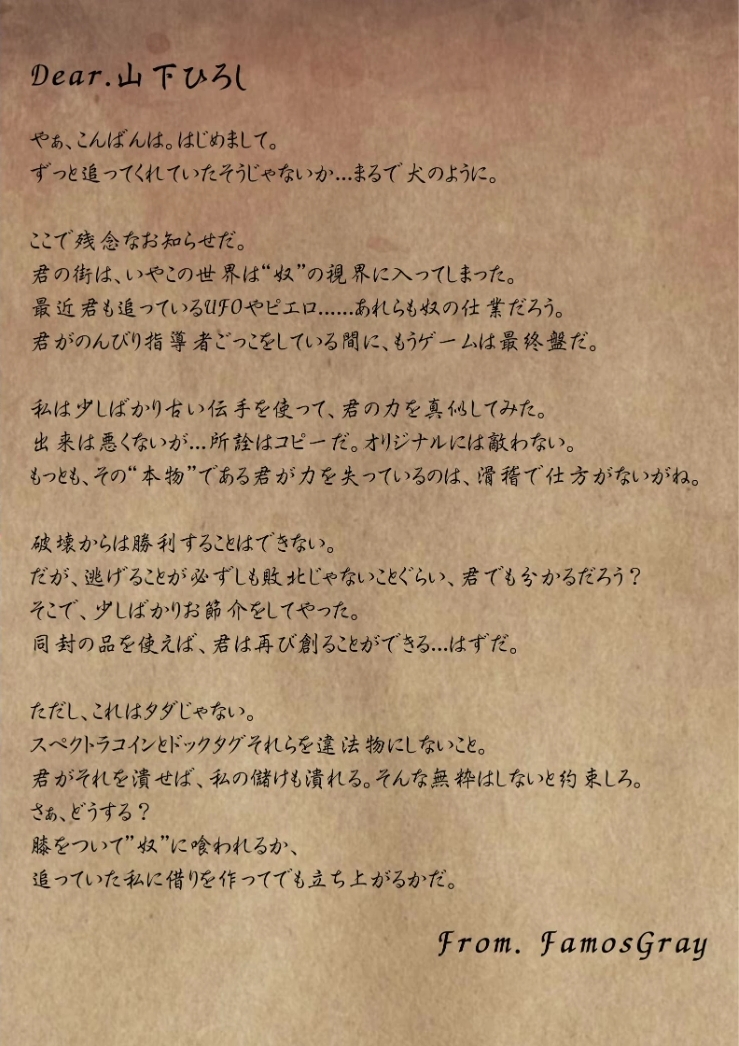 Dear.山下ひろし
やぁ、こんばんは。はじめまして。
ずっと追ってくれていたそうじゃないか...まるで犬のように。
ここで残念なお知らせだ。
君の街は、いやこの世界は“奴”の視界に入ってしまった。
最近君も追っているUFOやピエロ......あれらも奴の仕業だろう。
君がのんびり指導者ごっこをしている間に、もうゲームは最終盤だ。
私は少しばかり古い伝手を使って、君の力を真似してみた。
出来は悪くないが...所詮はコピーだ。オリジナルには敵わない。
もっとも、その“本物”である君が力を失っているのは、滑稽で仕方がないがね。
破壊からは勝利することはできない。
だが、逃げることが必ずしも敗北じゃないことぐらい、君でも分かるだろう？
そこで、少しばかりお節介をしてやった。
同封の品を使えば、君は再び創ることができる...はずだ。
ただし、これはタダじゃない。
スペクトラコインとドックタグそれらを違法物にしないこと。
君がそれを潰せば、私の儲けも潰れる。そんな無粋はしないと約束しろ。
さぁ、どうする？
膝をついて”奴”に喰われるか、
追っていた私に借りを作ってでも立ち上がるかだ。
From. FamosGray